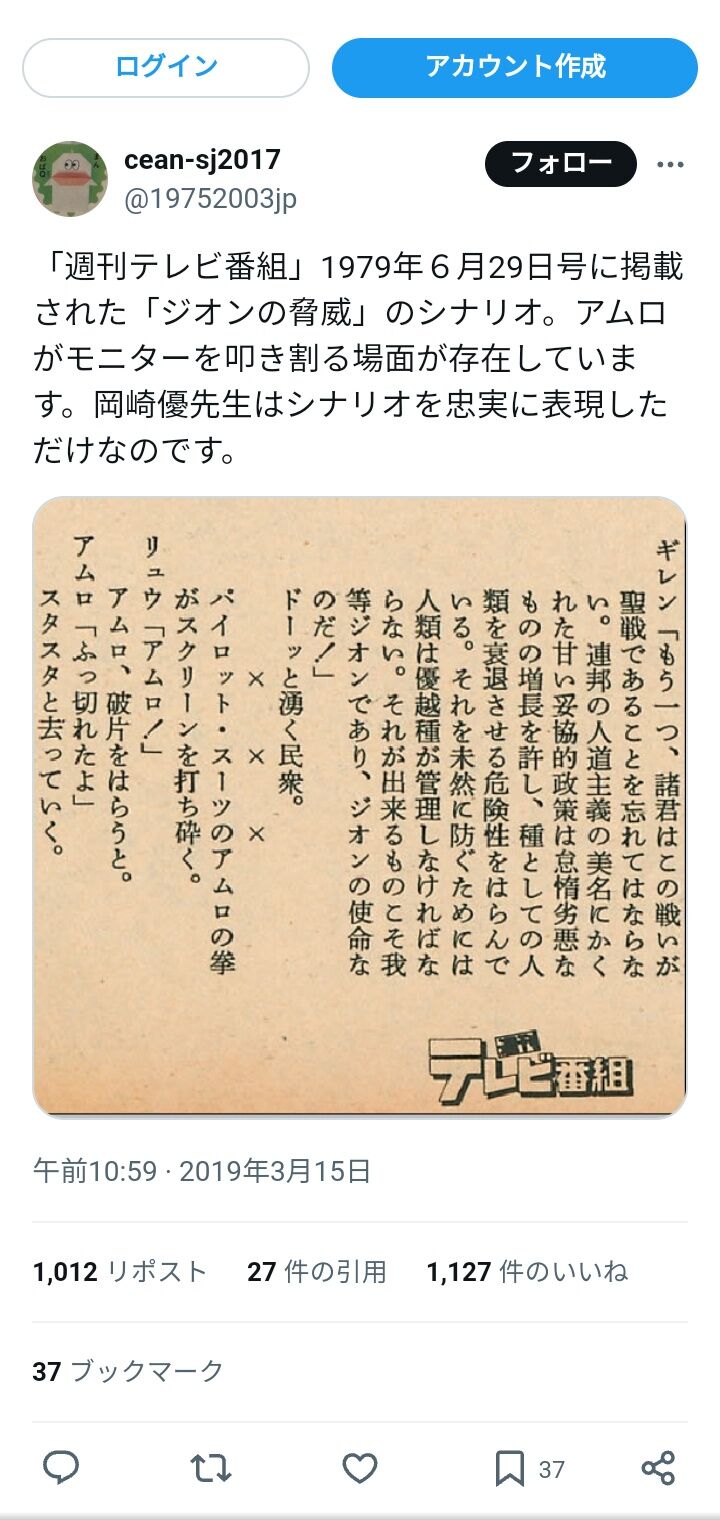 ログイン
アカウント作成
おばQ
cean-sj2017
@19752003jp
フォロー
「週刊テレビ番組」1979年６月29日号に掲載
された「ジオンの脅威」のシナリオ。アムロ
がモニターを叩き割る場面が存在していま
す。岡崎優先生はシナリオを忠実に表現した
だけなのです。
ギレン「もう一つ、諸君はこの戦いが
聖戦であることを忘れてはならな
い。連邦の人道主義の美名にかく
れた甘い妥協的政策は怠惰劣悪な
ものの増長を許し、種としての人
類を衰退させる危険性をはらんで
いる。それを未然に防ぐためには
人類は優越種が管理しなければな
らない。それが出来るものこそ我
等ジオンであり、ジオンの使命な
のだ！」
ドーッと湧く民衆。
× × ×
パイロット・スーツのアムロの拳
がスクリーンを打ち砕く。
リュウ「アムロ！」
アムロ、破片をはらうと。
アムロ「ふっ切れたよ」
スタスタと去っていく。
週刊
テレビ番組
午前10:59 · 2019年3月15日
1,012 リポスト 27 件の引用 1,127 件のいいね
37 ブックマーク
37